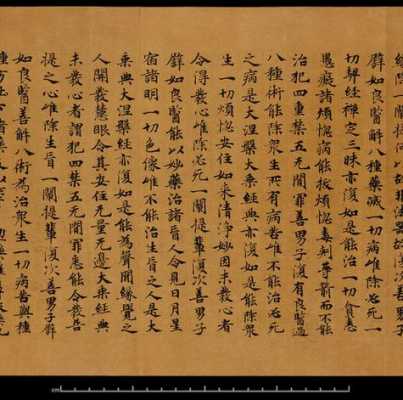 善男子
譬如良醫解八種藥滅一切病唯除必死一
切契經禪定三昧亦復如是能治一切貪恚
愚癡諸煩惱病能拔煩惱毒刺等箭而不能
治犯四重禁五无間罪善男子復有良醫過
八種術能除眾生所有病苦唯不能治必死
之病是大涅槃大乘經典亦復如是能除眾
生一切煩惱安住如來清淨妙因未發心者
令得發心唯除必死一闡提輩復次善男子
譬如良醫能以妙藥治諸盲人令見日月星
宿諸明一切色像唯不能治生盲之人是大
乘典大涅槃經亦復如是能為聲聞緣覺之
人開發慧眼令其安住无量无邊大乘經典
未發心者謂犯四禁五无間罪悉能令發菩
提之心唯除生盲一闡提輩復次善男子譬
如良醫善解八術為治眾生一切病苦與種
種方
cm